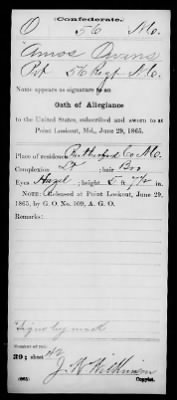 Confederate.
O 56 N.C.
Amos Owens
Pvt 56 Regt N.C.
Name appears as signature to an
Oath of Allegiance
to the United States, subscribed and sworn to at
Point Lookout, Md., June 29, 1865.
Place of residence Rutherford Co N.C.
Complexion Lt ; hair Bro
Eyes Hazel ; height 5 ft 7½ in
NOTE: Released at Point Lookout, June 29,
1865, by G. O. No. 109, A. G. O.
Remarks:
Signs by mark
Number of roll:
39; sheet
J. W. Wilkinson
Copyist.